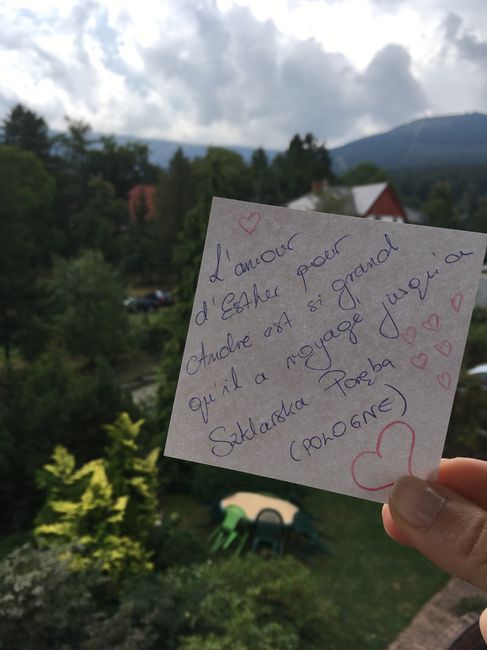 L'amour
d'Esther pour
André est si grand
qu'il a voyagé jusqu'à
Szklarska Poręba
(POLOGNE)